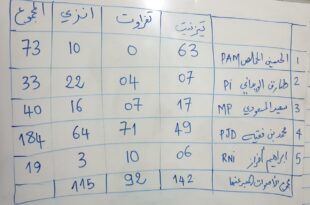 تيزنيت تفراوت انزي المجموع
1 الحسين الخاص PAM 63 0 10 73
2 طارق PI 07 04 22 33
3 سعيد السعودي MP 17 07 16 40
4 محمد بن فقيه PJD 49 71 64 184
5 ابراهيم RNI 06 10 3 19
142 92 115